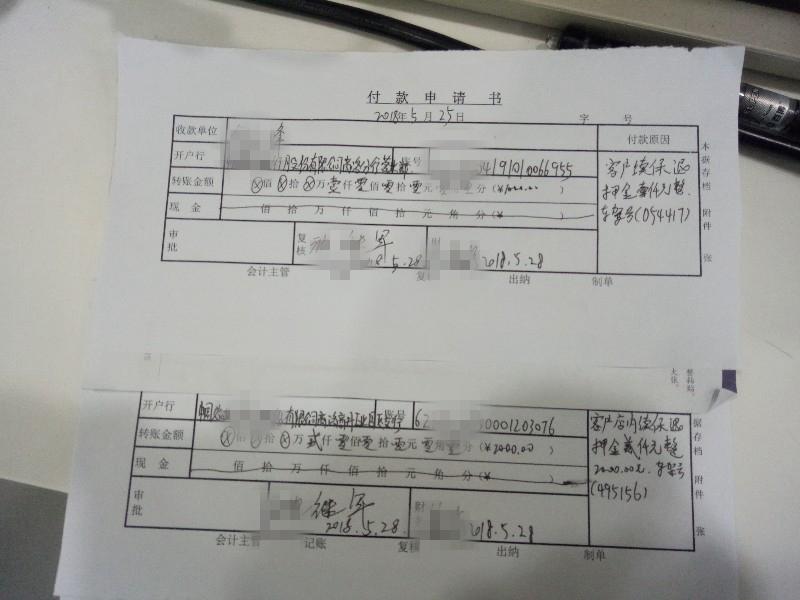 付款申请书
2018年5月25日 字 号
收款单位 付款原因
开户行 股份有限公司 账号 4191010066955 客户续保退
转账金额 ⊗佰⊗拾⊗万壹仟零佰零拾零元零角零分(¥1000.00) 押金壹仟元整
现金 佰拾万仟佰拾元角分(¥ ) 车架号(054417)
审批 复核 军 5.28 财 2018.5.28
会计主管 复 出纳 制单
本据存档 附件 张
开户行 有限公司 6 0001203076 客户店内续保退
转账金额 ⊗佰⊗拾⊗万贰仟零佰零拾零元零角零分(¥2000.00) 押金贰仟元整
现金 佰拾万仟佰拾元角分(¥ ) 2000.00元 车架号
(495156)
审批 继军 2018.5.28 财 2018.5.28
会计主管 记账 复核 出纳 制单
据存档 附件 张